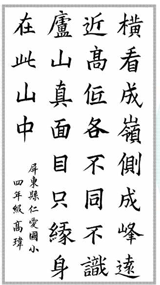 橫看成嶺側成峰遠
近高低各不同不識
廬山真面目只緣身
在此山中
屏東縣仁愛國小
四年級高瑋